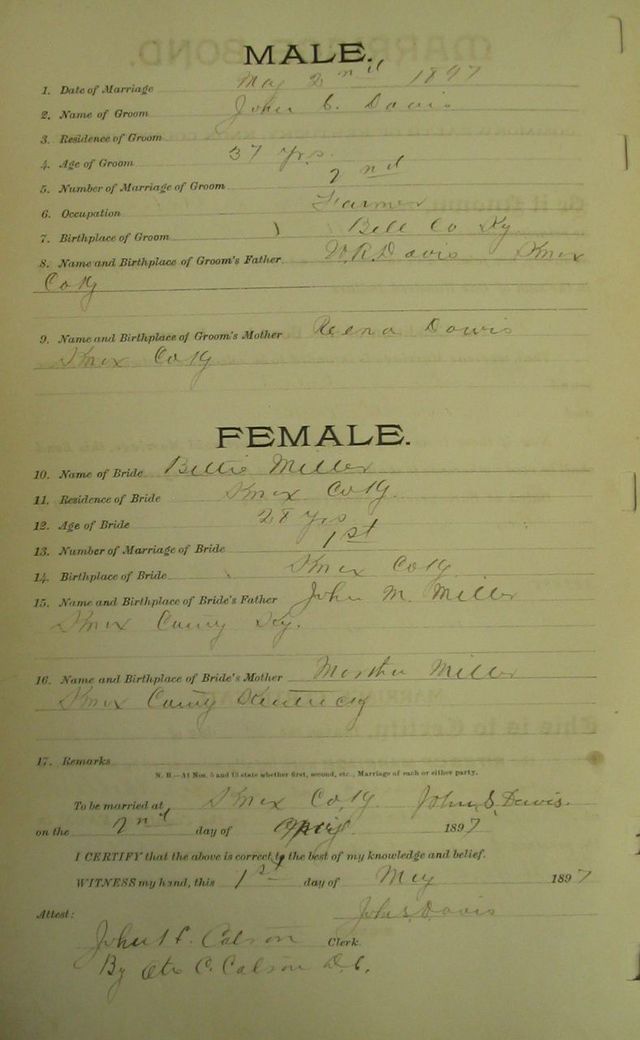 MALE.
1. Date of Marriage May 2nd 1897
2. Name of Groom John C. Davis
3. Residence of Groom
4. Age of Groom 37 yrs.
5. Number of Marriage of Groom 2nd
6. Occupation Farmer
7. Birthplace of Groom Bell Co Ky
8. Name and Birthplace of Groom's Father W.R. Davis Knox
Co Ky
9. Name and Birthplace of Groom's Mother Davis
Knox Co Ky
FEMALE.
10. Name of Bride Bettie Miller
11. Residence of Bride Knox Co Ky.
12. Age of Bride 28 yrs
13. Number of Marriage of Bride 1st
14. Birthplace of Bride Knox Co Ky.
15. Name and Birthplace of Bride's Father John M. Miller
Knox County Ky.
16. Name and Birthplace of Bride's Mother Martha Miller
Knox County Kentucky
17. Remarks
N. B.—At Nos. 5 and 13 state whether first, second, etc., Marriage of each or either party.
To be married at Knox Co, Ky. John S. Davis.
on the 2nd day of 1897
I CERTIFY that the above is correct to the best of my knowledge and belief.
WITNESS my hand, this 1st day of May 1897
Attest: John S. Davis
John Catson Clerk.
By C. Catson D.C.